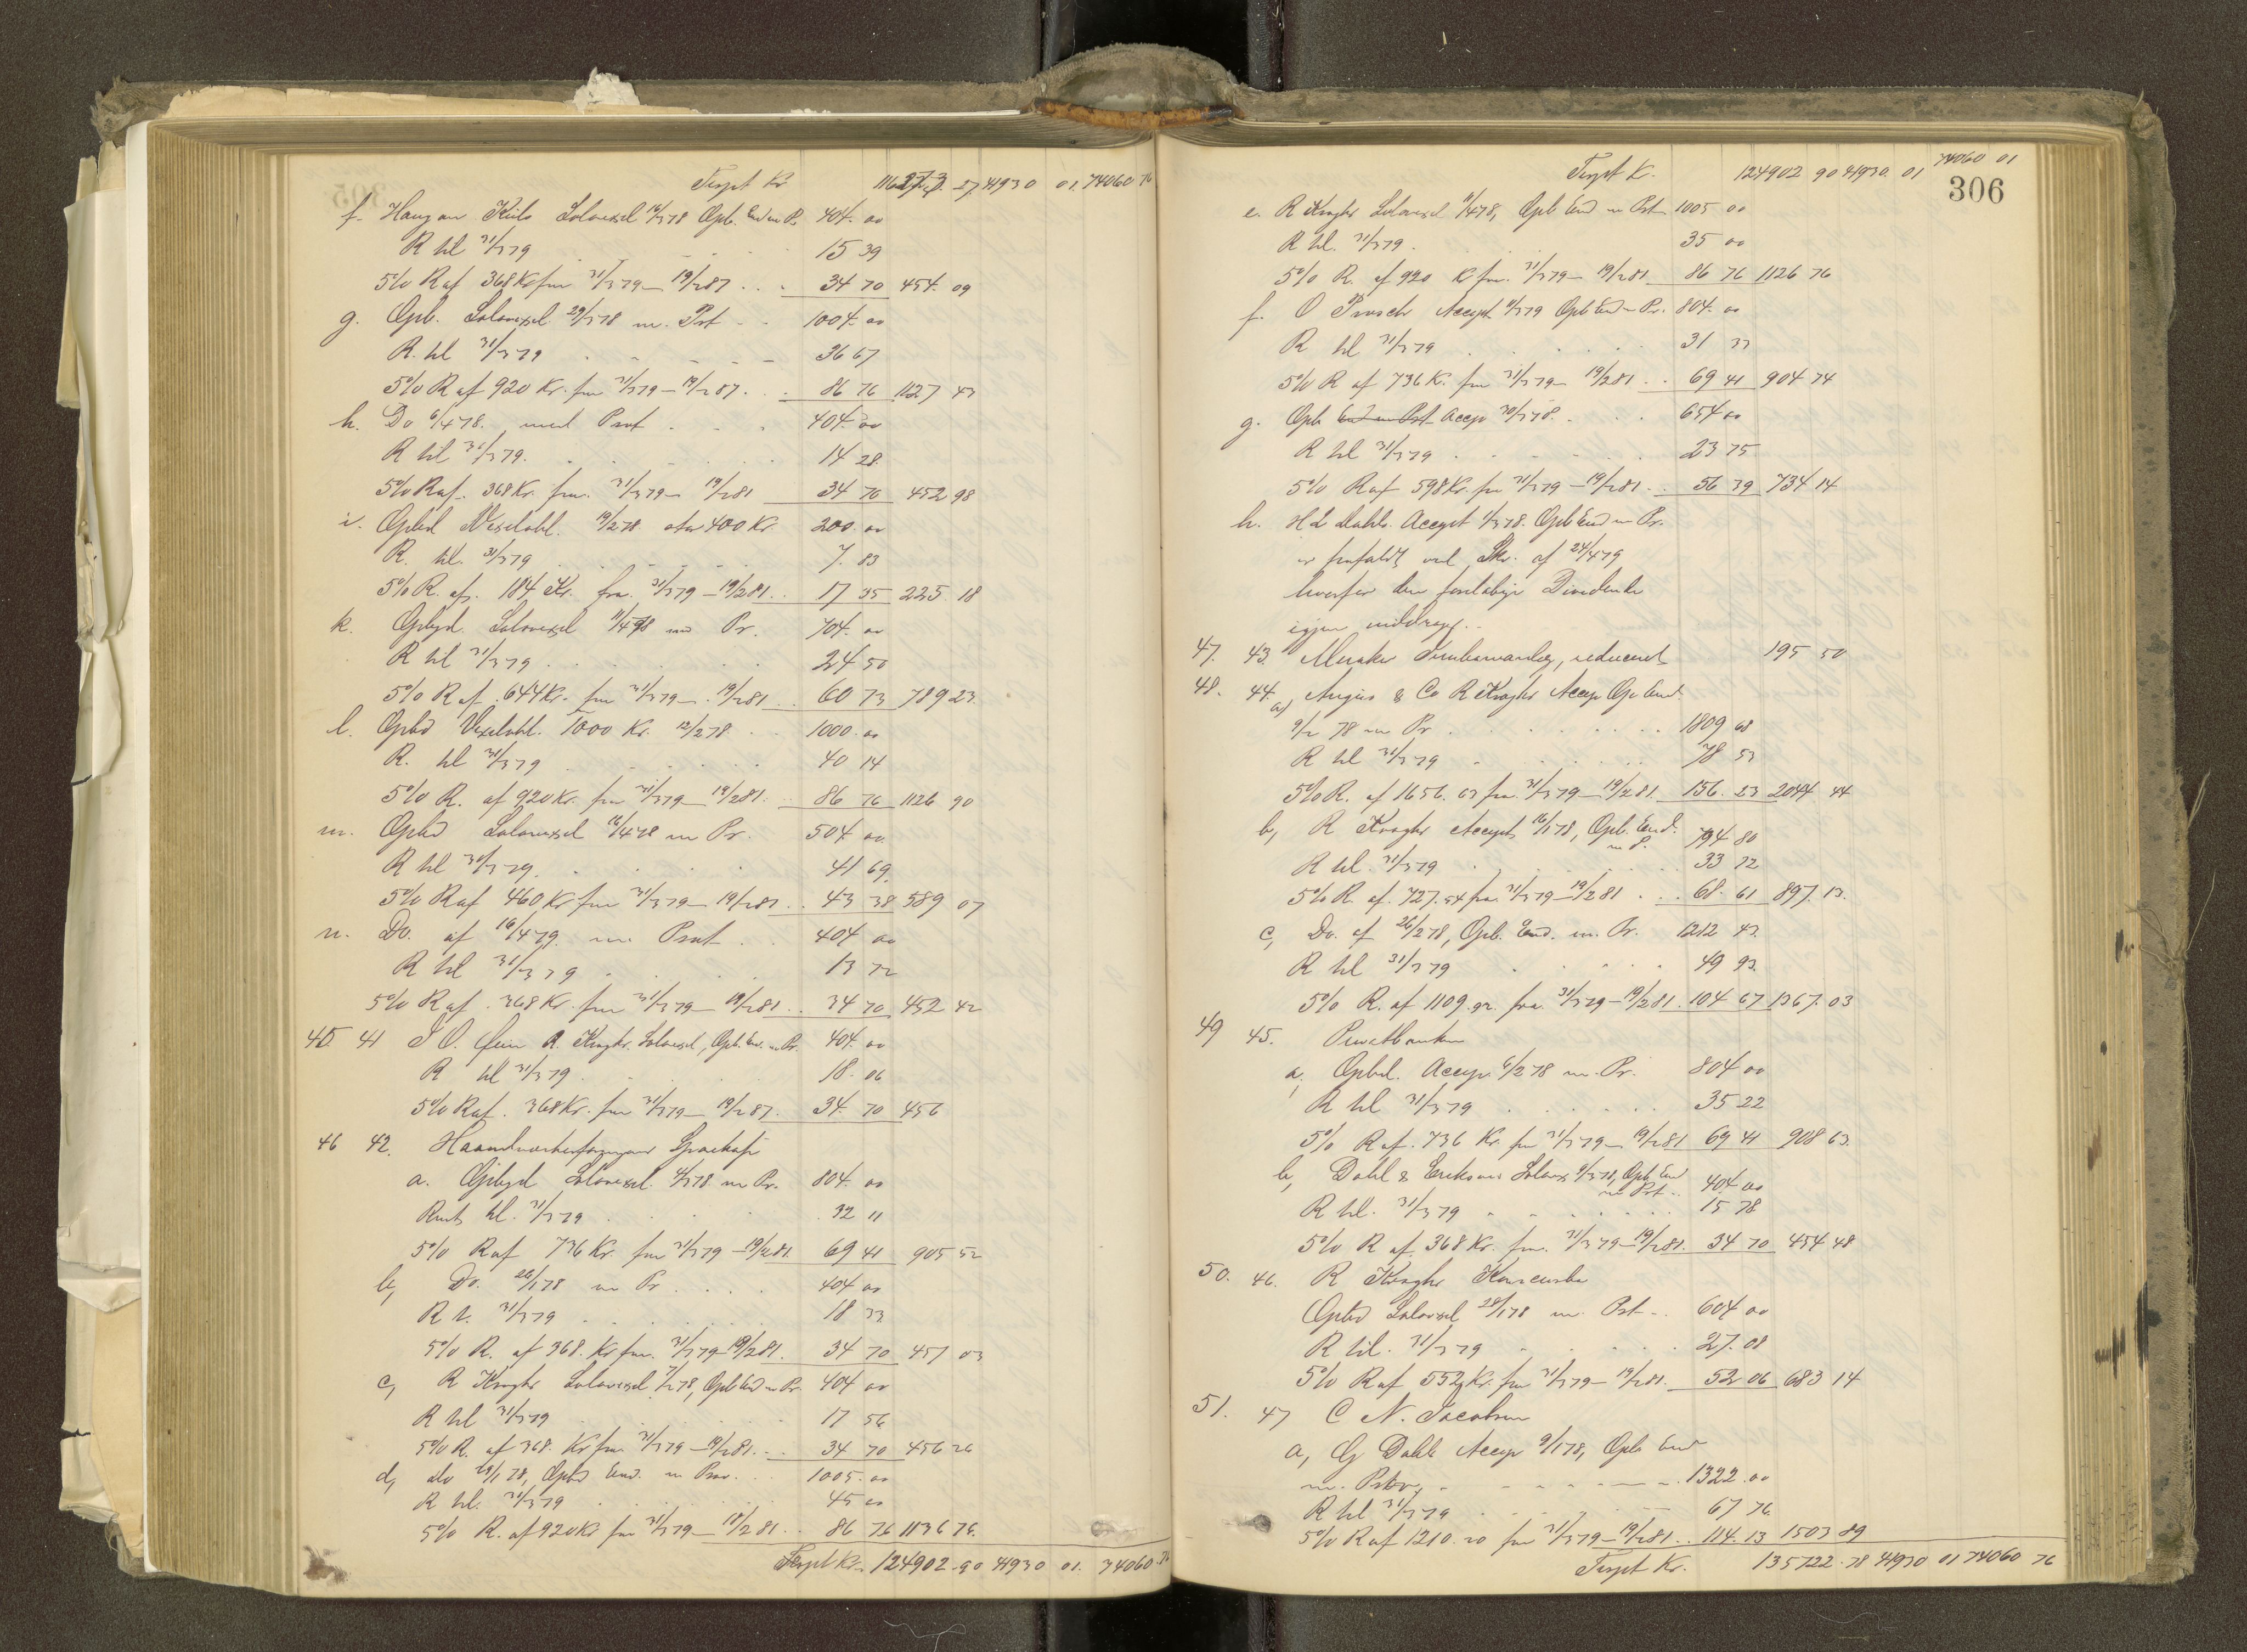 Trspt Kr 41930 01. 74060 76
f. Solavexel 16/3 78 Opb. End m Pr. 404. 00
R til 31/3 79 15 39
5% R af 368 Kr fra 31/3 79 - 19/2 81 34 70 454. 09
g. Opb. Solavexel 29/3 78 m. Prt 1004. 00
R. til 31/3 79 36 67
5% R af 920 Kr. fra 31/3 79 - 19/2 81. 86 76 1127 43
h. Do 6/4 78. med Prot 404. 00
R til 31/3 79. 14 28
5% R af. 368 Kr. fra. 31/3 79 - 19/2 81 34 70 452 98
i. Opbd Vexelobl. 19/2 78 400 Kr. 200. 00
R. til. 31/3 79 7. 83
5% R. af. 184 Kr. fra. 31/3 79 - 19/2 81. 17 35 225. 18
k. Opbyd. Solavexel 11/4 78 m Pr. 704. 00
R til 31/3 79 24 50
5% R af 644 Kr. fra 31/3 79 - 19/2 81 60 73 789 23
l. Opbd Vexelobl. 1000 Kr. 12/2 78 1000. 00
R. til 31/3 79 40 14
5% R. af 920 Kr. fra 31/3 79 - 19/2 81. 86 76 1126 90
m. Opbd Solavexel 16/4 78 m Pr. 504. 00
R til 31/3 79. 41 69.
5% R af 460 Kr fra 31/3 79 - 19/2 81. 43 38 589 07
n. Do. af 16/4 79. m. Prot 404 00
R til 31/3 79 13 72
5% R af. 368 Kr. fra 31/3 79 - 19/2 81. 34 70 452 42
45 41 R. Kroghs. Solavexel, Opb. End. m Pr. 404. 00
R til 31/3 79. 18. 06
5% R af. 368 Kr. fra 31/3 79 - 19/2 81. 34. 70 456
46 42.
a. Opbyd Solavexel. 4/3 78 m Pr. 804. 00
Rent til. 31/3 79 32 11
5% R af 736 Kr. fra 31/3 79 - 19/2 81. 69 41 905 52
b, Do. 26/1 78 m Pr 404 00
R t. 31/3 79 18 33
5% R. af 368. Kr fra. 31/3 79 - 19/2 81. 34 70 457 03
c, R Kroghs Solavexel 7/2 78, Opb End m Pr. 404 00
R til 31/3 79 17 56
5% R. af 368. Kr fra 31/3 79 - 19/2 81. 34 70 456 26
d, do 28/1 78, Opbd End. m Prot. 1005. 00
R til. 31/3 79 45 00
5% R. af 920 Kr fra 31/3 79 - 19/2 81. 86 76 1136 76.
Trspt Kr. 124902. 90 41930 01. 74060. 76
Trspt Kr. 124902 90 41930. 01 74060 01
306
e. R Kroghs Solavexel 11/4 78, Opb End m Prt. 1005 00
R til. 31/3 79. 35 00
5% R. af 920 Kr fra. 31/3 79 - 19/2 81. 86 76 1126 76
f. O Accept 11/3 79 Opb End m Pr. 804. 00
R til 31/3 79 31 33
5% R af 736 Kr. fra 31/3 79 - 19/2 81. 69 41 904 74
g. Opb End m Prt Accep 30/3 78. 654 00
R til 31/3 79 23 75
5% R af 598 Kr. fra 31/3 79 - 19/2 81. 56 39 734 14
h. Dahls. Accept 1/3 78. Opb End m Pr.
er frafaldt ved Skr. af 24/4 79
hvorfor den foreløbige Dividende
igjen inddrages.
47. 43. Meraker, reduceret 195 50
48. 44. a) & Co R Kroghs Accep Op End
9/2 78 m Pr 1809 68
R til 31/3 79 78 53
5% R. af 1656. 63 fra. 31/3 79 - 19/2 81 156. 23 2044 44
b, R Kroghs Accept 16/1 78, Opb. End.
m P. 794 80
R til. 31/3 79 33 72
5% R. af. 727. 54 fra. 31/3 79 - 19/2 81 68. 61 897. 13.
c, Do. af 26/2 78, Opb. End. m. Pr. 1212 43.
R til 31/3 79 49 93.
5% R. af 1109. 92. fra. 31/3 79 - 19/2 81. 104 67 1367. 03
49 45. Privatbanken
a, Opbd. Accep. 6/2 78 m. Pr. 804 00
R til 31/3 79 35 22
5% R af. 736 Kr. fra 31/3 79 - 19/2 81 69 41 908 63.
b, Dahl & Eriksens Solavex 9/3 78, Opb End
m Prt 404 00
R til. 31/3 79 15 78
5% R af 368 Kr. fra. 31/3 79 - 19/2 81. 34 70 454 48
50. 46. R Kroghs
Opbd Solavexel 28/1 78 m. Prt 604 00
R til. 31/3 79 27. 08
5% R af 552 Kr. fra 31/3 79 - 19/2 81. 52 06 683 14
51. 47 C N. Jacobsen
a, Dahls Accep 9/1 78, Opb End
m. 1322. 00
R til 31/3 79 67 76
5% R af 1210. 20 fra 31/3 79 - 19/2 81. 114. 13 1503 89
Trspt Kr. 135722. 78 41930 01 74060 76